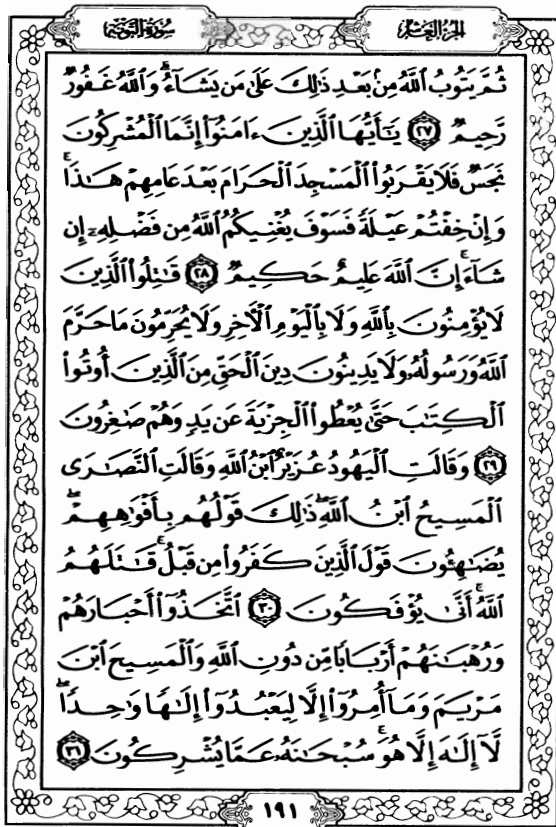 الجزء العاشر
سورة التوبة
ثُمَّ يَتُوبُ ٱللَّهُ مِنۢ بَعْدِ ذَٰلِكَ عَلَىٰ مَن يَشَآءُ ۗ وَٱللَّهُ غَفُورٌ
رَّحِيمٌ ٢٧ يَٰٓأَيُّهَا ٱلَّذِينَ ءَامَنُوٓا۟ إِنَّمَا ٱلْمُشْرِكُونَ
نَجَسٌ فَلَا يَقْرَبُوا۟ ٱلْمَسْجِدَ ٱلْحَرَامَ بَعْدَ عَامِهِمْ هَٰذَا ۚ
وَإِنْ خِفْتُمْ عَيْلَةً فَسَوْفَ يُغْنِيكُمُ ٱللَّهُ مِن فَضْلِهِۦٓ إِن
شَآءَ ۚ إِنَّ ٱللَّهَ عَلِيمٌ حَكِيمٌ ٢٨ قَٰتِلُوا۟ ٱلَّذِينَ
لَا يُؤْمِنُونَ بِٱللَّهِ وَلَا بِٱلْيَوْمِ ٱلْءَاخِرِ وَلَا يُحَرِّمُونَ مَا حَرَّمَ
ٱللَّهُ وَرَسُولُهُۥ وَلَا يَدِينُونَ دِينَ ٱلْحَقِّ مِنَ ٱلَّذِينَ أُوتُوا۟
ٱلْكِتَٰبَ حَتَّىٰ يُعْطُوا۟ ٱلْجِزْيَةَ عَن يَدٍ وَهُمْ صَٰغِرُونَ
٢٩ وَقَالَتِ ٱلْيَهُودُ عُزَيْرٌ ٱبْنُ ٱللَّهِ وَقَالَتِ ٱلنَّصَٰرَى
ٱلْمَسِيحُ ٱبْنُ ٱللَّهِ ۖ ذَٰلِكَ قَوْلُهُم بِأَفْوَٰهِهِمْ ۖ
يُضَٰهِـُٔونَ قَوْلَ ٱلَّذِينَ كَفَرُوا۟ مِن قَبْلُ ۚ قَٰتَلَهُمُ
ٱللَّهُ ۚ أَنَّىٰ يُؤْفَكُونَ ٣٠ ٱتَّخَذُوٓا۟ أَحْبَارَهُمْ
وَرُهْبَٰنَهُمْ أَرْبَابًا مِّن دُونِ ٱللَّهِ وَٱلْمَسِيحَ ٱبْنَ
مَرْيَمَ وَمَآ أُمِرُوٓا۟ إِلَّا لِيَعْبُدُوٓا۟ إِلَٰهًا وَٰحِدًا ۖ
لَّآ إِلَٰهَ إِلَّا هُوَ ۚ سُبْحَٰنَهُۥ عَمَّا يُشْرِكُونَ ٣١
١٩١